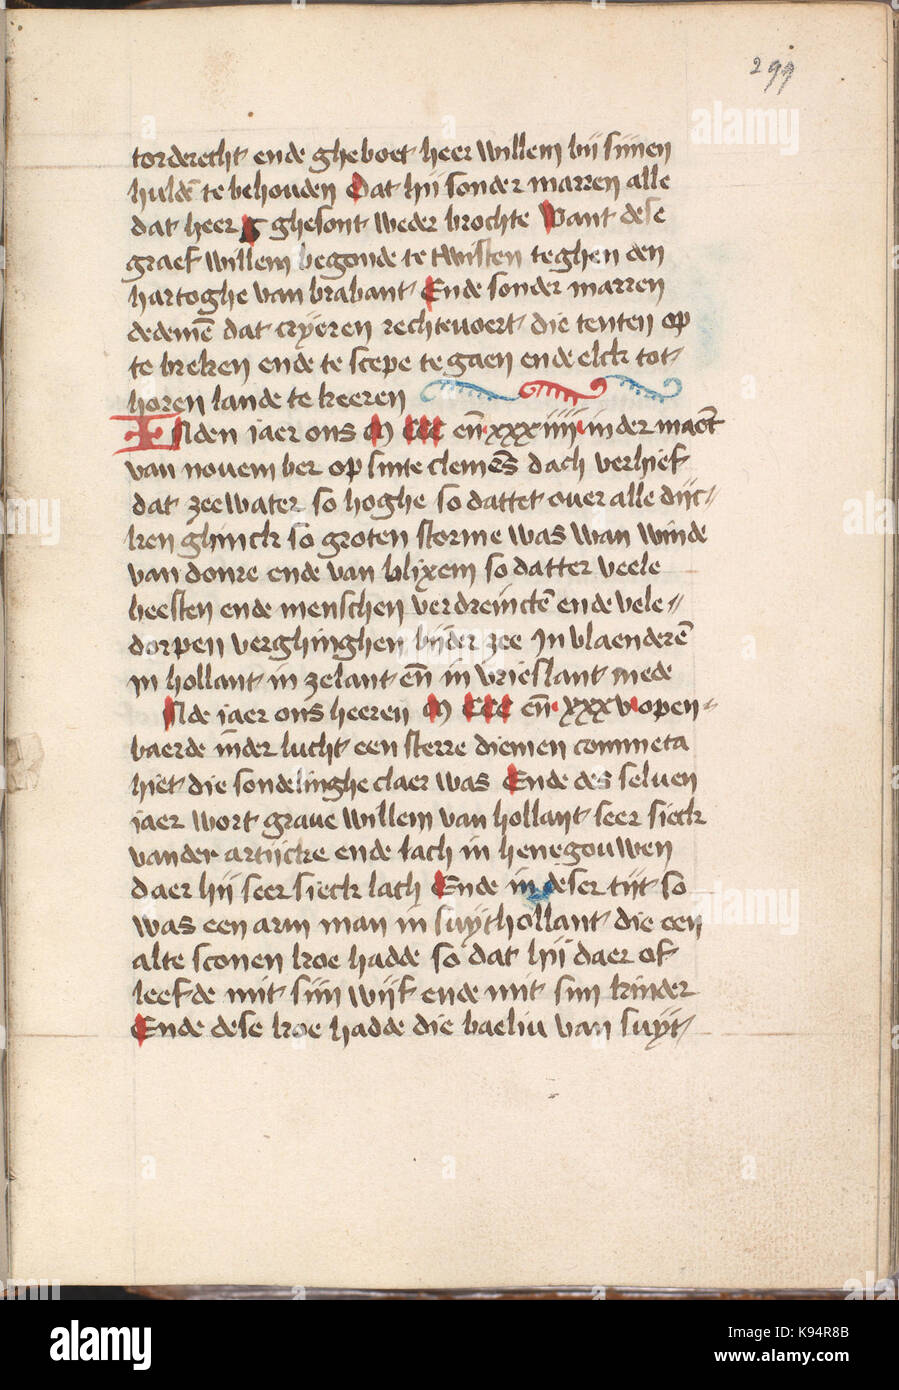 299
torderecht ende gheboet heer willem bij sijnen
huldē te behouden Dat hij sonder marren alle
dat heer G ghesont weder brochte Want dese
graef willem begonde te twisten teghen den
hartoghe van brabant Ende sonder marren
dedemē dat cryeren rechtevoert die tenten op
te breken ende te scepe te gaen ende elck tot
horen lande te keeren
INden iaer ons M CCC eñ xxxiiii in der maēt
van nouember op sinte clemēs dach verhief
dat zeewater so hoghe so dattet ouer alle dijc-
ken ghinck so groten storme was wan winde
van donre ende van blixem so datter veele
beesten ende menschen verdreinctē ende vele-
dorpen verghinghen bijder zee In vlaenderē
in hollant in zelant eñ in vrieslant mede
INde iaer ons heeren M CCC eñ xxxv open-
baerde inder lucht een sterre diemen commeta
hiet die sondelinghe claer was Ende des seluen
iaer wort graue willem van hollant seer sieck
vander artijcke ende lach in henegouwen
daer hij seer sieck lach Ende in deser tijt so
was een arm man in suythollant die een
alte sconen koe hadde so dat hij daer of
leefde mit sijn wijf ende mit sijn kinder
Ende dese koe hadde die baeliu van suyt
alamy
alamy
alamy
alamy
Image ID: K94R8B
www.alamy.com